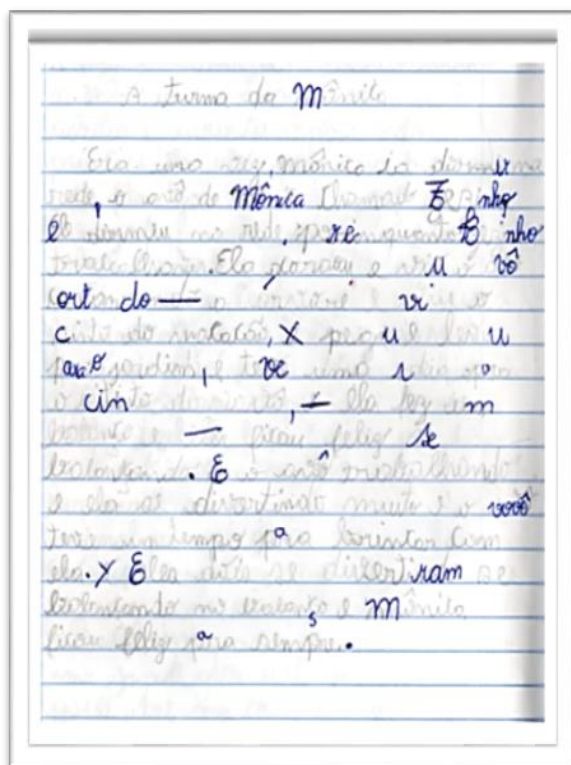 A turma da Mônica
Era uma vez, mônica ia dormir na
rede, o avô de Mônica Chamado Zezinho
e dormiu na rede, enquanto Zezinho
trabalhava. Ela acordou e viu o vô
cortando — a árvore e viu o
cinto do macacão, X pegou e levou
para o jardim, e teve uma ideia
o cinto do macacão, — ela fez um
balanço e — ficou feliz se
balançando. E o avô trabalhando
e ela se divertindo muito e o vovô
teve um tempo pra brincar com
ela. Y Eles dois se divertiram se
balançando no balanço e Mônica
ficou feliz pra sempre.